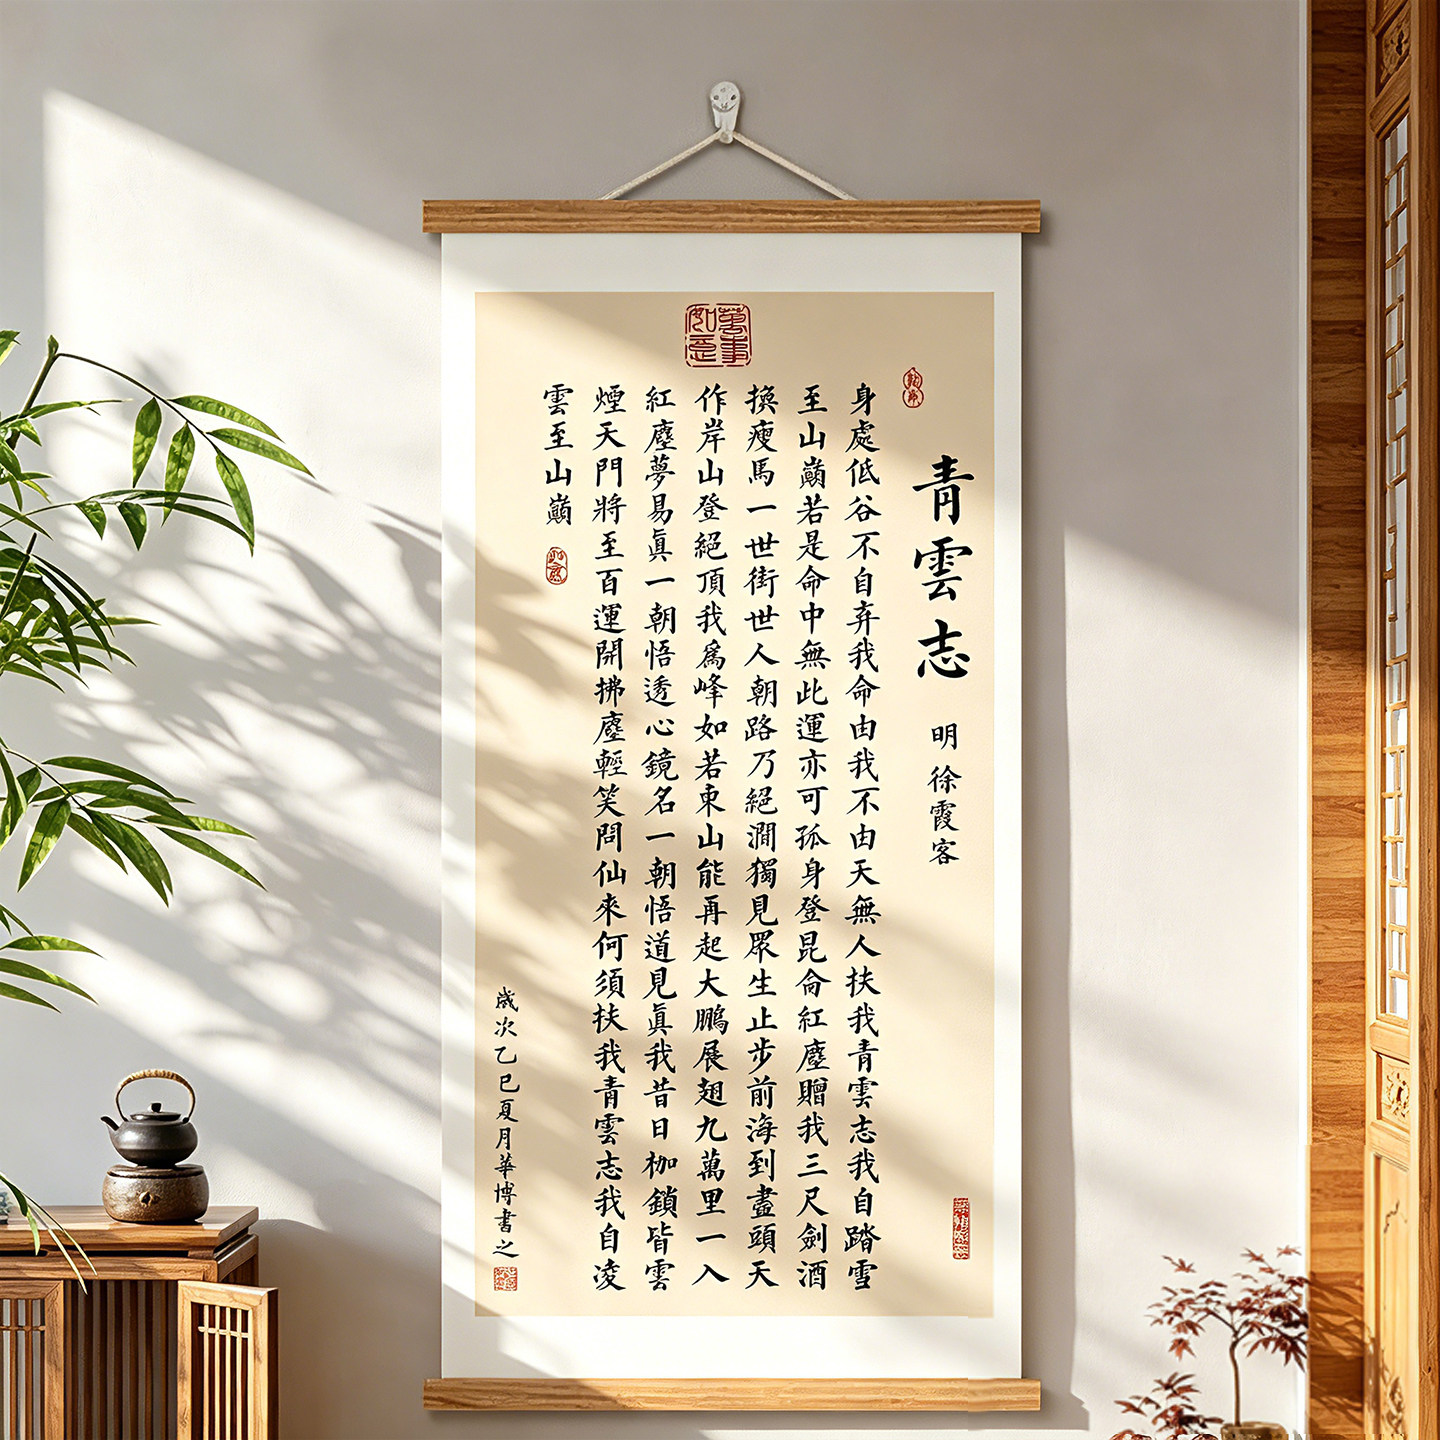 萬事如意
青雲志
明 徐霞客
身處低谷不自弃我命由我不由天無人扶我青雲志我自踏雪
至山巔若是命中無此運亦可孤身登昆侖紅塵贈我三尺劍酒
換瘦馬一世街世人朝路乃絕澗獨見眾生止步前海到盡頭天
作岸山登絕頂我為峰如若東山能再起大鵬展翅九萬里一入
紅塵夢易真一朝悟透心鏡名一朝悟道見真我昔日枷鎖皆雲
煙天門將至百運開拂塵輕笑問仙來何須扶我青雲志我自凌
雲至山巔
歲次乙巳夏月華博書之